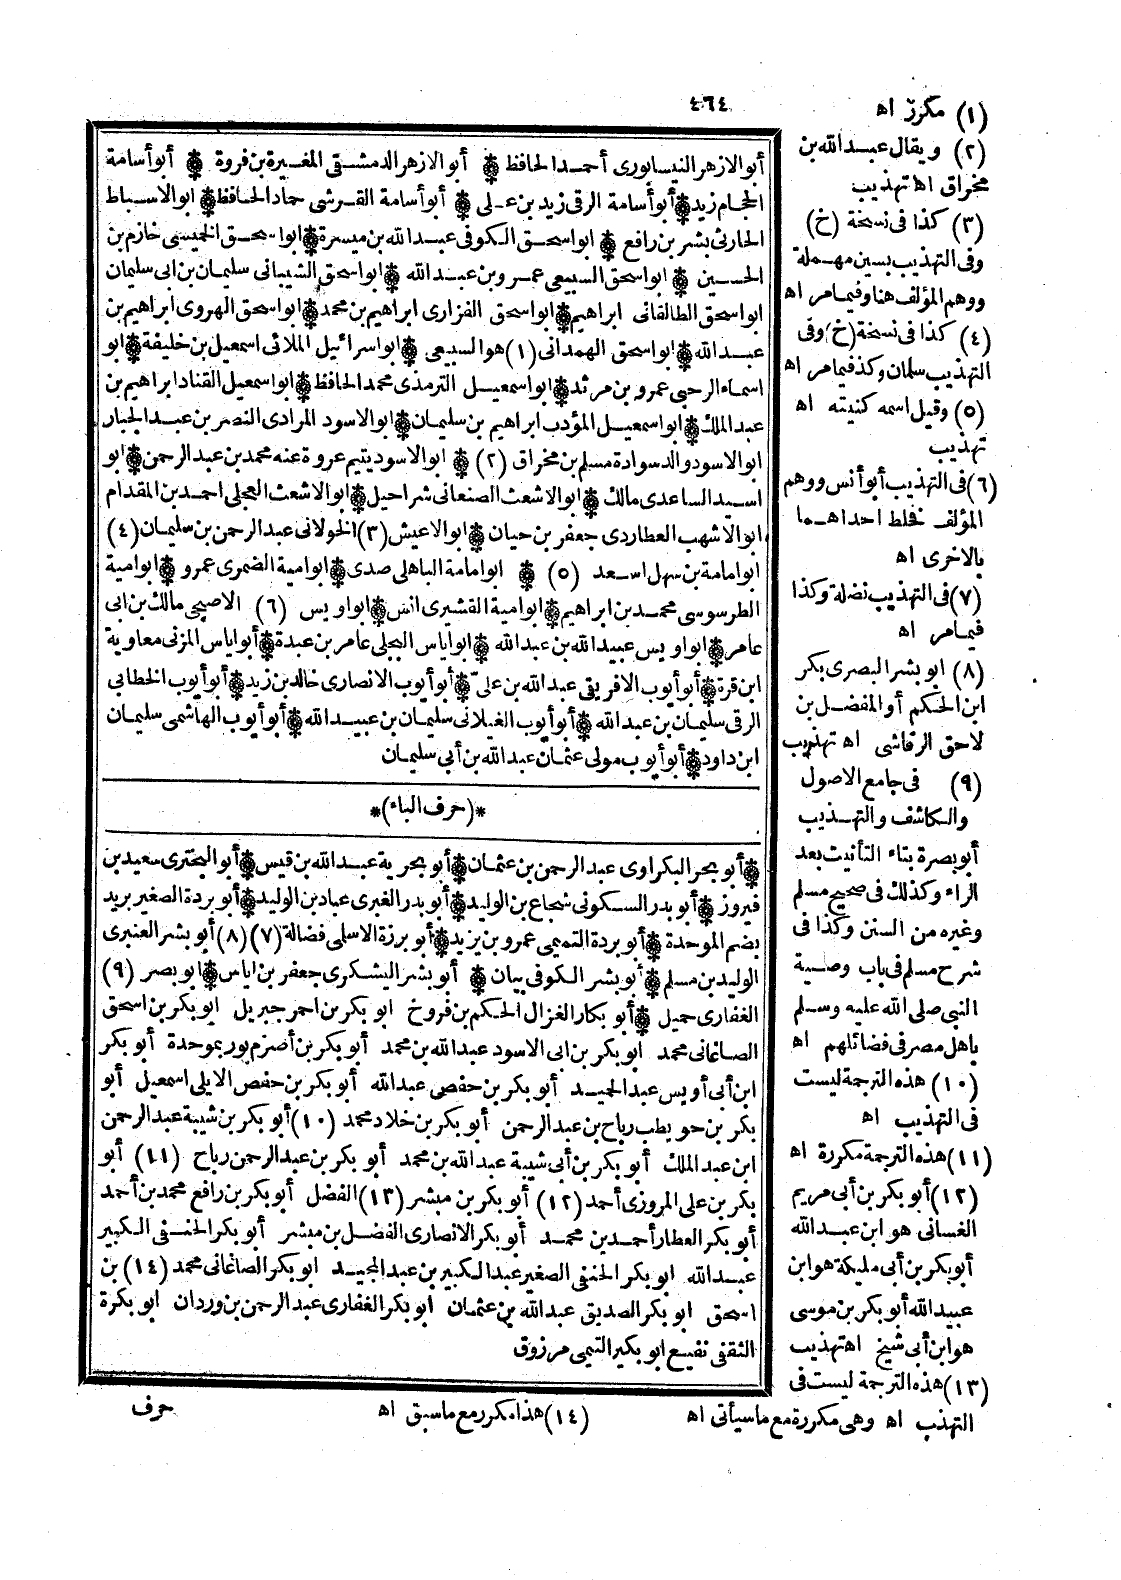 ٤٦٤
أبو الازهر النيسابورى أحمد الحافظ * أبو الازهر الدمشقى المغيرة بن فروة * أبو أسامة
الحجام زيد * أبو أسامة الرقى زيد بن على * أبو أسامة القرشى حماد الحافظ * ابو الاسباط
الحارثى بشر بن رافع * ابو اسحق الكوفى عبد الله بن ميسرة * ابو اسحق الخميسى خازم بن
الحسين * ابو اسحق السبيعى عمرو بن عبد الله * ابو اسحق الشيبانى سليمان بن ابى سليمان
ابو اسحق الطالقانى ابراهيم * ابو اسحق الفزارى ابراهيم بن محمد * ابو اسحق الهروى ابراهيم بن
عبد الله * ابو اسحق الهمدانى (١) هو السبيعى * ابو اسرائيل الملائى اسمعيل بن خليفة * ابو
اسماء الرحبى عمرو بن مرثد * ابو اسمعيل الترمذى محمد الحافظ * ابو اسمعيل القناد ابراهيم بن
عبد الملك * ابو اسمعيل المؤدب ابراهيم بن سليمان * ابو الاسود المرادى النضر بن عبد الجبار
ابو الاسود والد سوادة مسلم بن مخراق (٢) * ابو الاسود يتيم عروة عنه محمد بن عبد الرحمن * ابو
اسيد الساعدى مالك * ابو الاشعث الصنعانى شراحيل * ابو الاشعث العجلى احمد بن المقدام
ابو الاشهب العطاردى جعفر بن حيان * ابو الاعيش (٣) الخولانى عبد الرحمن بن سليمان (٤)
ابو امامة بن سهل اسعد (٥) * ابو امامة الباهلى صدى * ابو امية الضمرى عمرو * ابو امية
الطرسوسى محمد بن ابراهيم * ابو امية القشيرى انس * ابو اويس (٦) الاصبحى مالك بن ابى
عامر * ابو اويس عبيد الله بن عبد الله * ابو اياس البجلى عامر بن عبدة * أبو اياس المزنى معاوية
ابن قرة * أبو أيوب الافريقى عبد الله بن على * أبو أيوب الانصارى خالد بن زيد * أبو أيوب الخطابى
الرقى سليمان بن عبد الله * أبو أيوب الغيلانى سليمان بن عبيد الله * أبو أيوب الهاشمى سليمان
ابن داود * أبو أيوب مولى عثمان عبد الله بن أبى سليمان
*(حرف الباء)*
* أبو بحر البكراوى عبد الرحمن بن عثمان * أبو بحرية عبد الله بن قيس * أبو البخترى سعيد بن
فيروز * أبو بدر السكونى شجاع بن الوليد * أبو بدر الغبرى عباد بن الوليد * أبو بردة الصغير بريد
بضم الموحدة * أبو بردة التميمى عمرو بن يزيد * أبو برزة الاسلمى فضالة (٧) (٨) أبو بشر العنبرى
الوليد بن مسلم * أبو بشر الكوفى بيان * أبو بشر اليشكرى جعفر بن اياس * ابو بصر (٩)
الغفارى جميل * أبو بكار الغزال الحكم بن فروخ ابو بكر بن احمر جبريل ابو بكر بن اسحق
الصاغانى محمد ابو بكر بن ابى الاسود عبد الله بن محمد أبو بكر بن أصرم بور بموحدة أبو بكر
ابن أبى أويس عبد الحميد أبو بكر بن حفص عبد الله أبو بكر بن حفص الايلى اسمعيل أبو
بكر بن حويطب رباح بن عبد الرحمن أبو بكر بن خلاد محمد (١٠) أبو بكر بن شيبة عبد الرحمن
ابن عبد الملك أبو بكر بن أبى شيبة عبد الله بن محمد أبو بكر بن عبد الرحمن رباح (١١) أبو
بكر بن على المروزى أحمد (١٢) أبو بكر بن مبشر (١٣) الفضل أبو بكر بن رافع محمد بن أحمد
أبو بكر العطار أحمد بن محمد أبو بكر الانصارى الفضل بن مبشر أبو بكر الحنفى الكبير
عبد الله ابو بكر الحنفى الصغير عبد الكبير بن عبد المجيد ابو بكر الصاغانى محمد (١٤) بن
اسحق ابو بكر الصديق عبد الله بن عثمان ابو بكر الغفارى عبد الرحمن بن وردان ابو بكرة
الثقفى نفيع ابو بكير التيمى مرزوق
حرف
(١) مكرر اه
(٢) ويقال عبد الله بن
مخراق اه تهذيب
(٣) كذا فى نسخة (خ)
وفى التهذيب بسين مهملة
ووهم المؤلف هنا وفيما مر اه
(٤) كذا فى نسخة (خ) وفى
التهذيب سلمان وكذ فيما مر اه
(٥) وقيل اسمه كنيته اه
تهذيب
(٦) فى التهذيب أبو أنس ووهم
المؤلف فخلط احداهما
بالاخرى اه
(٧) فى التهذيب نضلة وكذا
فيما مر اه
(٨) ابو بشر البصرى بكر
ابن الحكم أو المفضل بن
لاحق الرقاشى اه تهذيب
(٩) فى جامع الاصول
والكاشف والتهذيب
أبو بصرة بتاء التأنيث بعد
الراء وكذلك فى صحيح مسلم
وغيره من السنن وكذا فى
شرح مسلم فى باب وصية
النبى صلى الله عليه وسلم
باهل مصر فى فضائلهم اه
(١٠) هذه الترجمة ليست
فى التهذيب اه
(١١) هذه الترجمة مكررة اه
(١٢) أبو بكر بن أبى مريم
الغسانى هو ابن عبد الله
أبو بكر بن أبى مليكة هو ابن
عبيد الله أبو بكر بن موسى
هو ابن أبى شيخ اه تهذيب
(١٣) هذه الترجمة ليست فى
التهذب اه وهى مكررة مع ما سيأتى اه
(١٤) هذا مكرر مع ما سبق اه